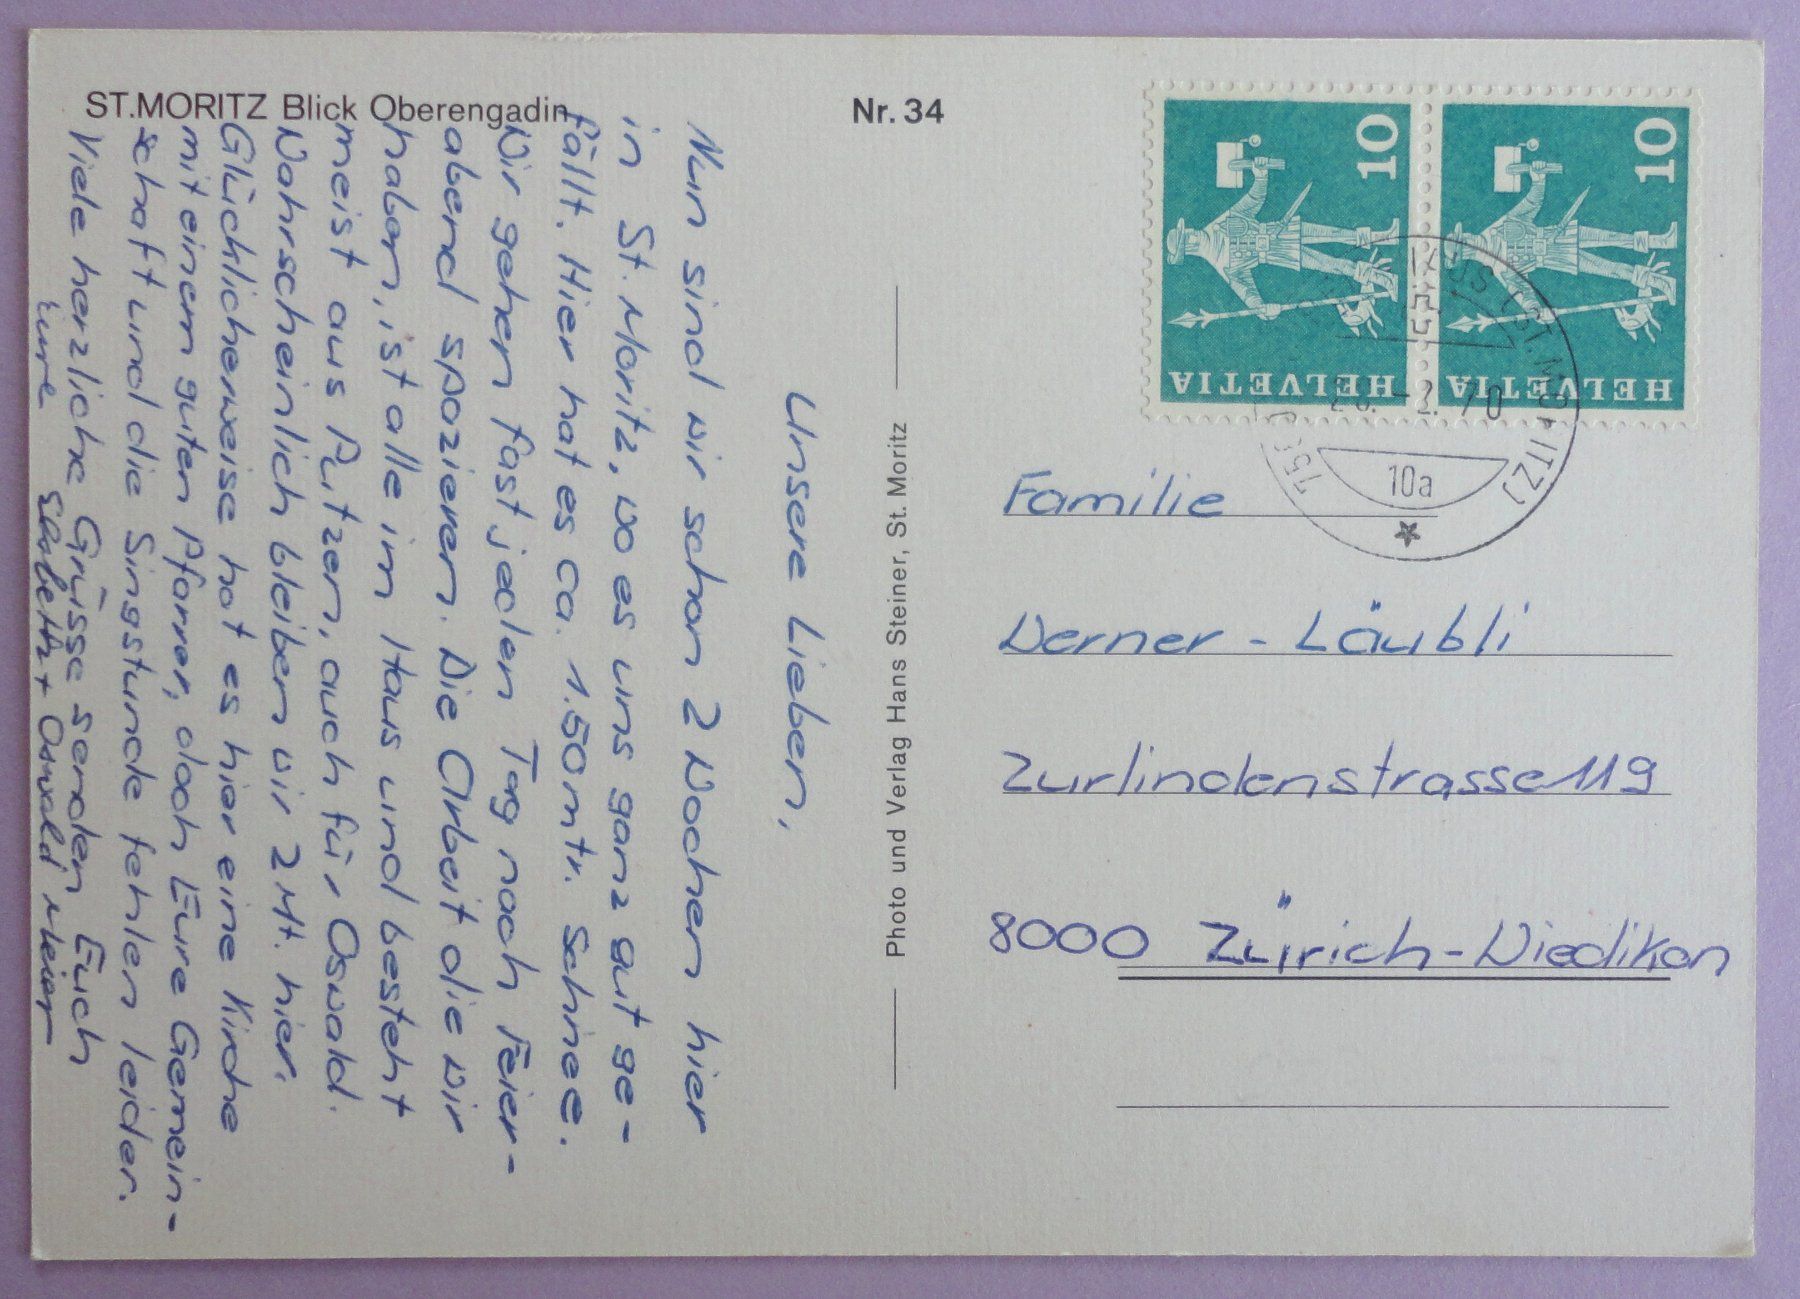 ST.MORITZ Blick Oberengadin
Nr. 34
Unsere Lieben,
Nun sind wir schon 2 Wochen hier
in St. Moritz, wo es uns ganz gut ge-
fällt. Hier hat es ca. 1.50 mtr. Schnee.
Wir gehen fast jeden Tag nach Feier-
abend spazieren. Die Arbeit die wir
haben, ist alle im Haus und besteht
meist aus Putzen, auch für Oswald.
Wahrscheinlich bleiben wir 2 Mt. hier.
Glücklicherweise hat es hier eine Kirche
mit einem guten Pfarrer, doch Eure Gemein-
schaft und die Singstunde fehlen leider.
Viele herzliche Grüsse senden Euch
Eure Elsbeth + Oswald Meier
Photo und Verlag Hans Steiner, St. Moritz
10
HELVETIA
10
HELVETIA
(ST. MORITZ)
-2. 70
10a
Familie
Werner - Läubli
Zurlindenstrasse 119
8000 Zürich-Wiedikon